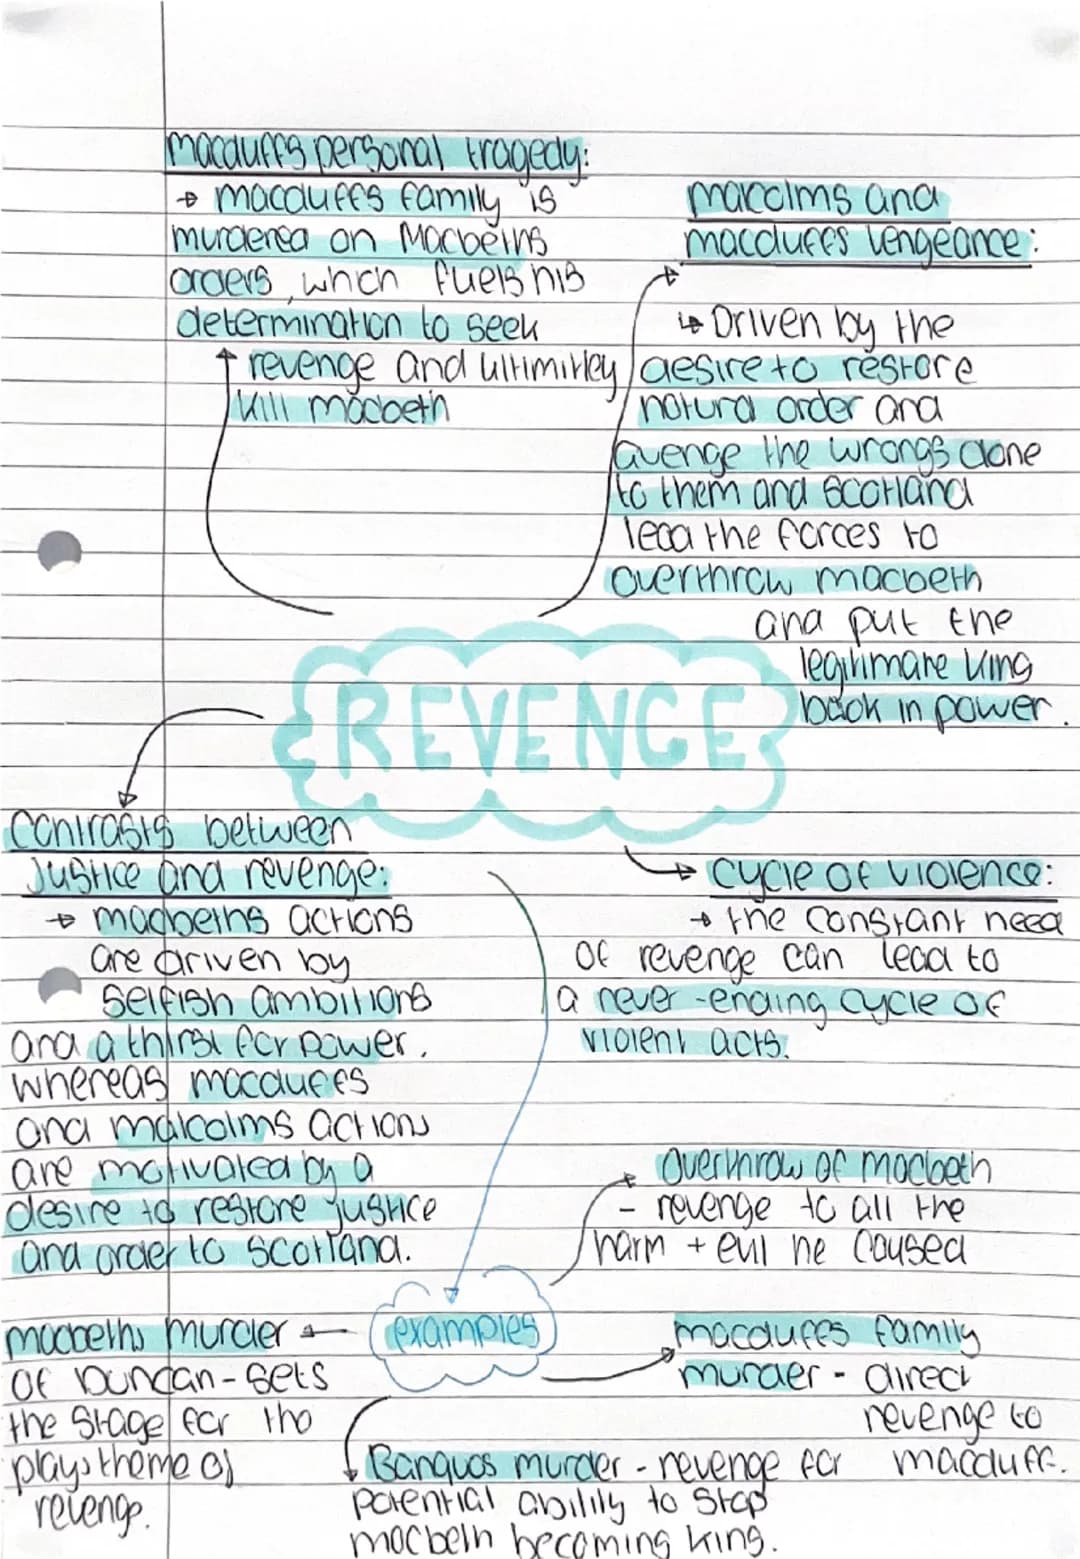 macduffs personal tragedy:
→ macduffs family is
murdered on Macbeths
orders, which fuels his
determination to seek
revenge and ultimitley
kill macbeth
malcolms and
macduffs vengeance:
↳ Driven by the
desire to restore
natural order and
avenge the wrongs done
to them and scotland
lead the forces to
overthrow macbeth
and put the
legitimate king
back in power.
REVENGE
Contrasts between
justice and revenge:
→ macbeths actions
are driven by
selfish ambitions
and a thirst for power.
whereas macduffs
and malcolms actions
are motivated by a
desire to restore justice
and order to scotland.
cycle of violence:
→ the constant need
of revenge can lead to
a never-ending cycle of
violent acts.
overthrow of macbeth
- revenge to all the
harm + evil he caused
examples
macbeths murder
of Duncan - sets
the stage for the
plays theme of
revenge.
macduffs family
murder - direct
revenge to
macduff.
Banquos murder - revenge for
potential ability to stop
macbeth becoming king.